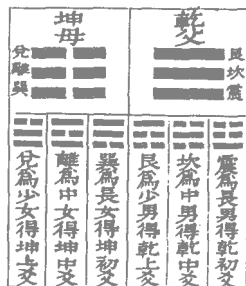 乾父
艮
坎
震
坤母
兌
離
巽
震為長男得乾初爻
坎為中男得乾中爻
艮為少男得乾上爻
巽為長女得坤初爻
離為中女得坤中爻
兌為少女得坤上爻